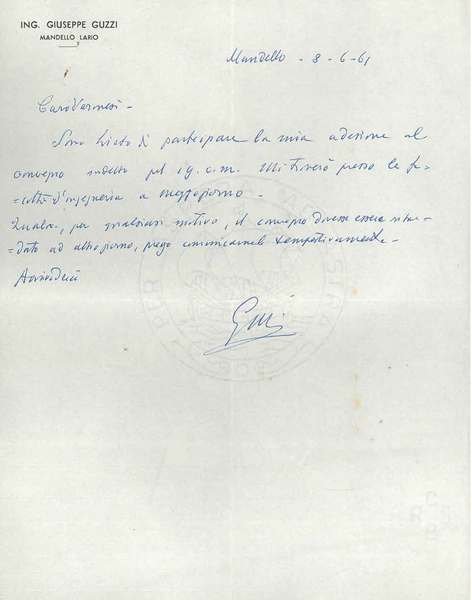 ING. GIUSEPPE GUZZI
MANDELLO LARIO
Mandello - 8-6-61
Caro Varinesi -
Sono lieto di partecipare la mia adesione al
convegno indetto pel 19 c.m. Mi troverò presso la fa-
coltà d'ingegneria a mezzogiorno -
Qualora, per qualsiasi motivo, il convegno dovesse essere riman-
dato ad altro giorno, prego comunicarmelo tempestivamente -
Arrivederci
Guzzi